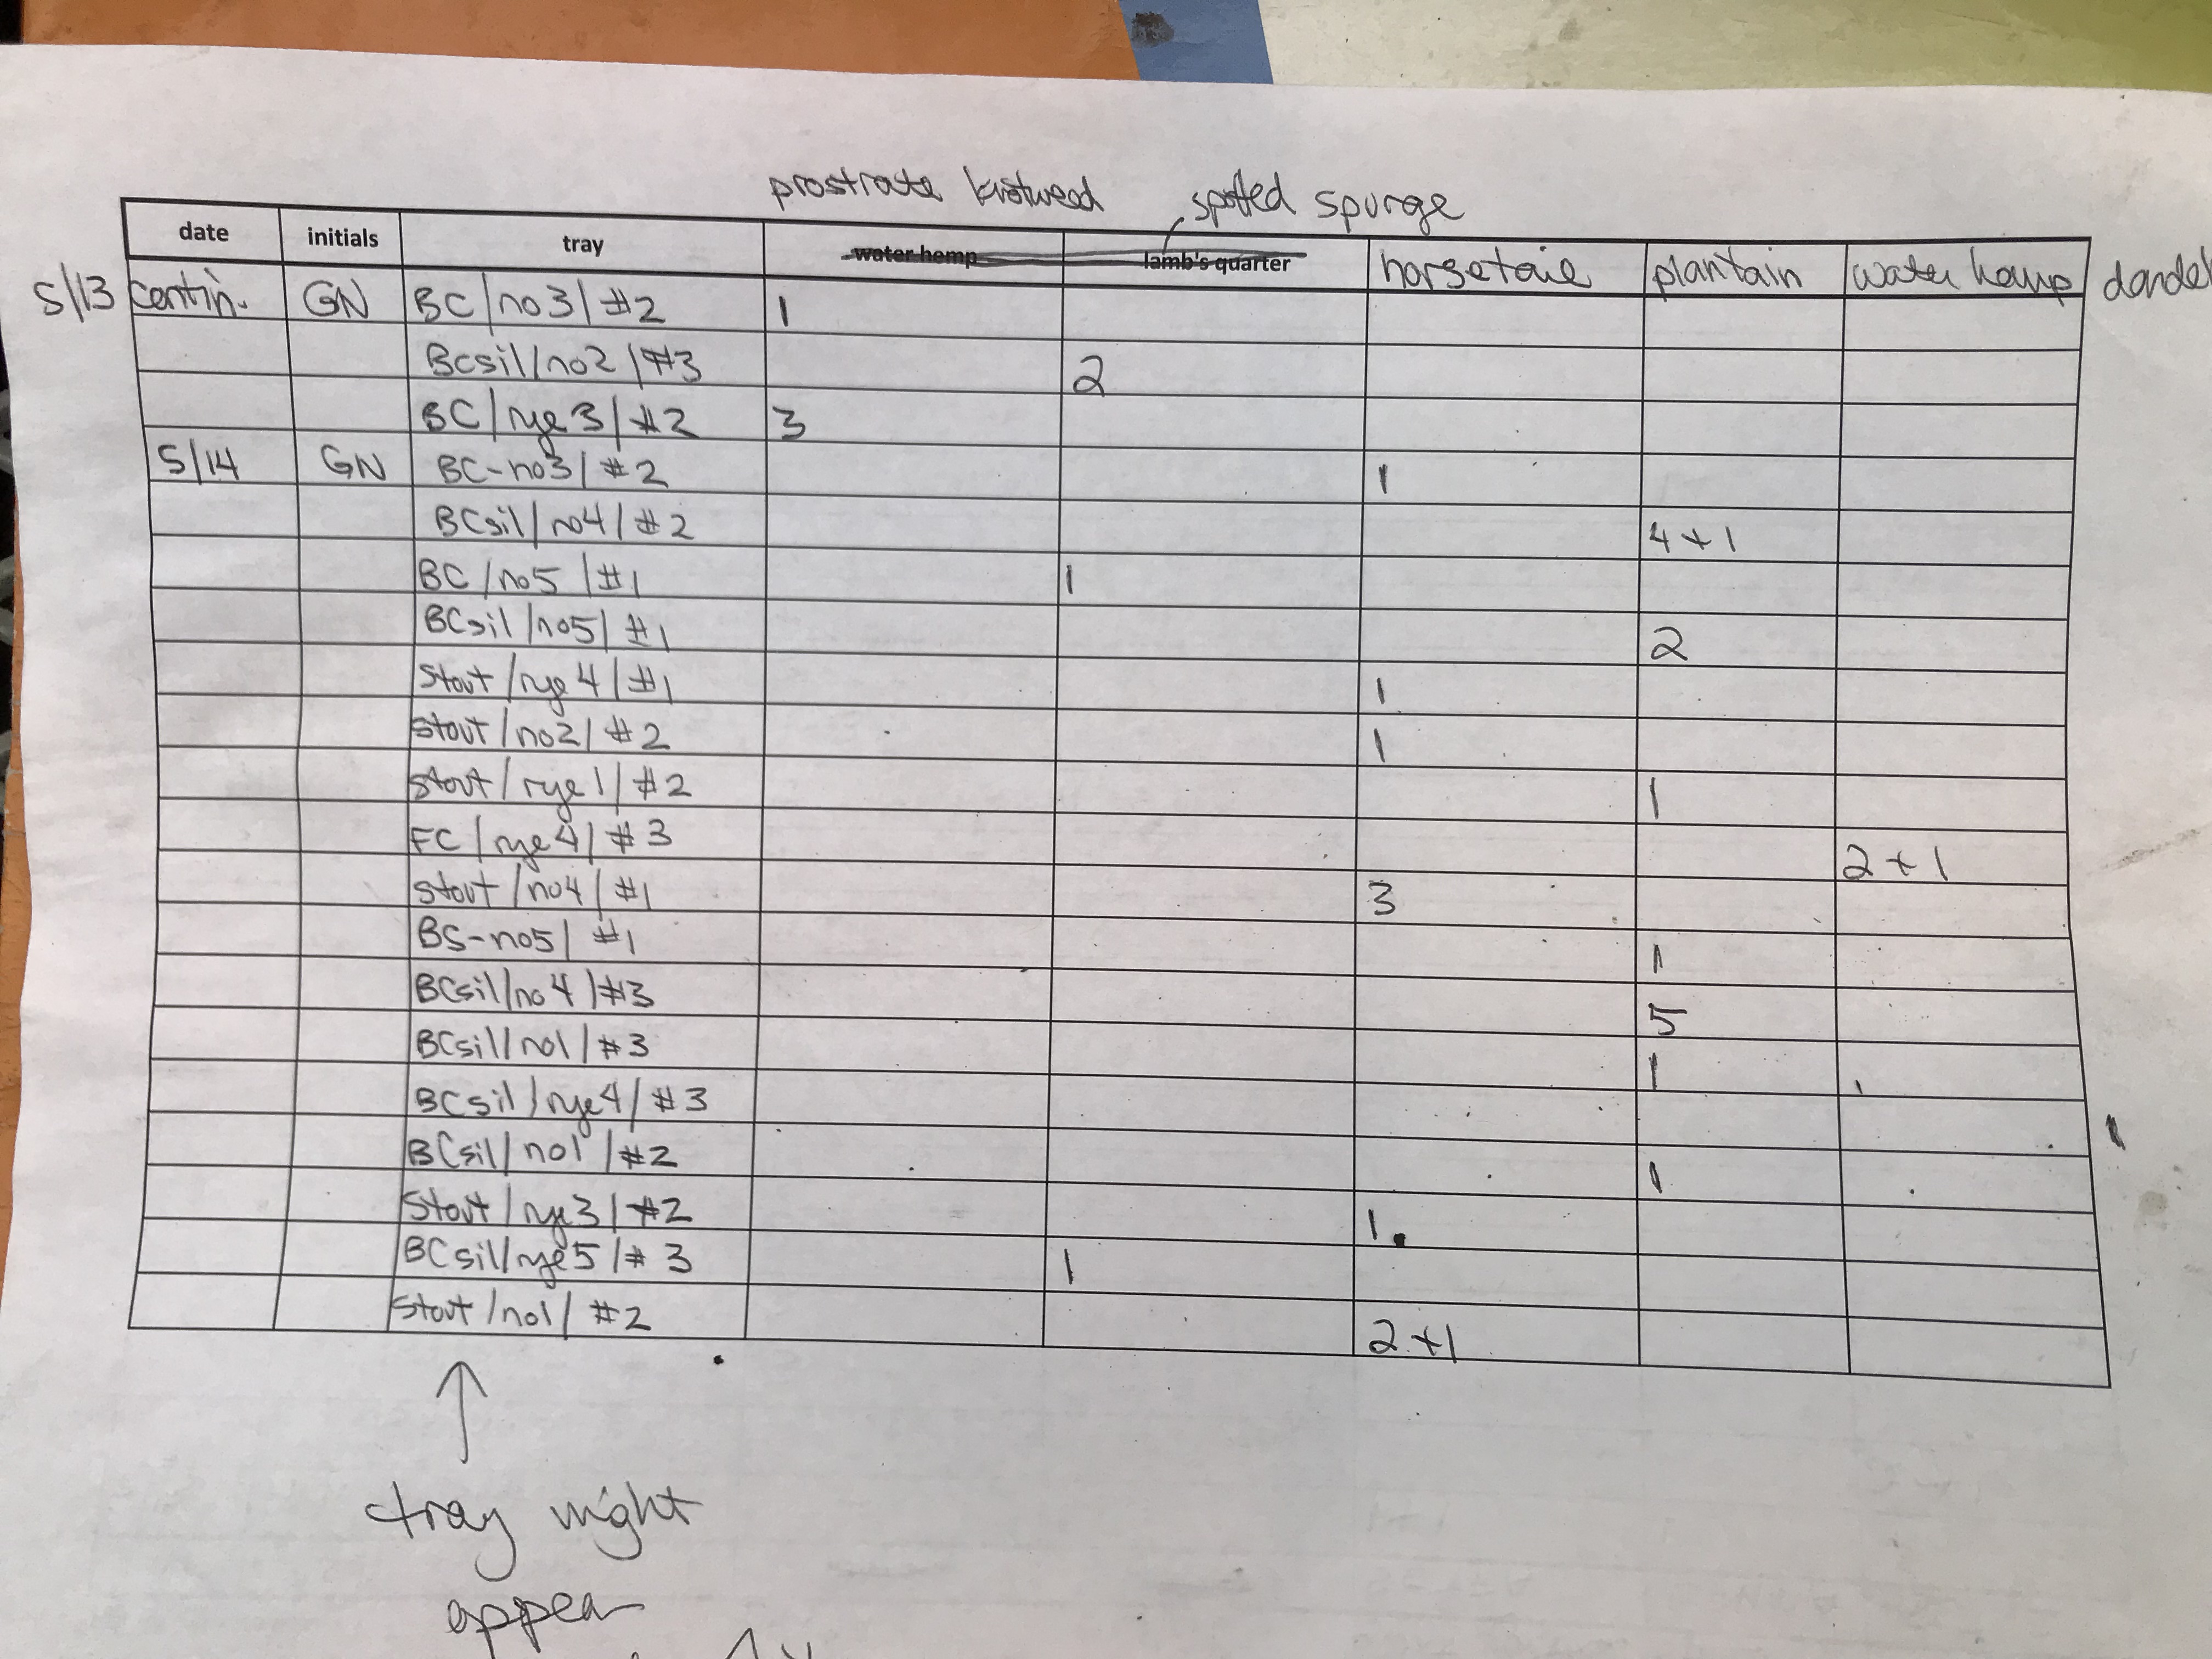 prostrate knotweed spotted spurge
date initials tray water hemp lamb's quarter horsetail plantain water hemp dandel
5/13 contin. GN BC/no3/#2 1
BCsil/no2/#3 2
BC/rye3/#2 3
5/14 GN BC-no3/#2 1
BCsil/no4/#2 4+1
BC/no5/#1 1
BCsil/no5/#1 2
Stout/rye4/#1 1
Stout/no2/#2 1
Stout/rye1/#2 1
FC/rye4/#3 2+1
Stout/no4/#1 3
BS-no5/#1 1
BCsil/no4/#3 5
BCsil/no1/#3 1
BCsil/rye4/#3 1
BCsil/no1/#2 1
Stout/rye3/#2 1
BCsil/rye5/#3 1
Stout/no1/#2 2+1
tray might
appear